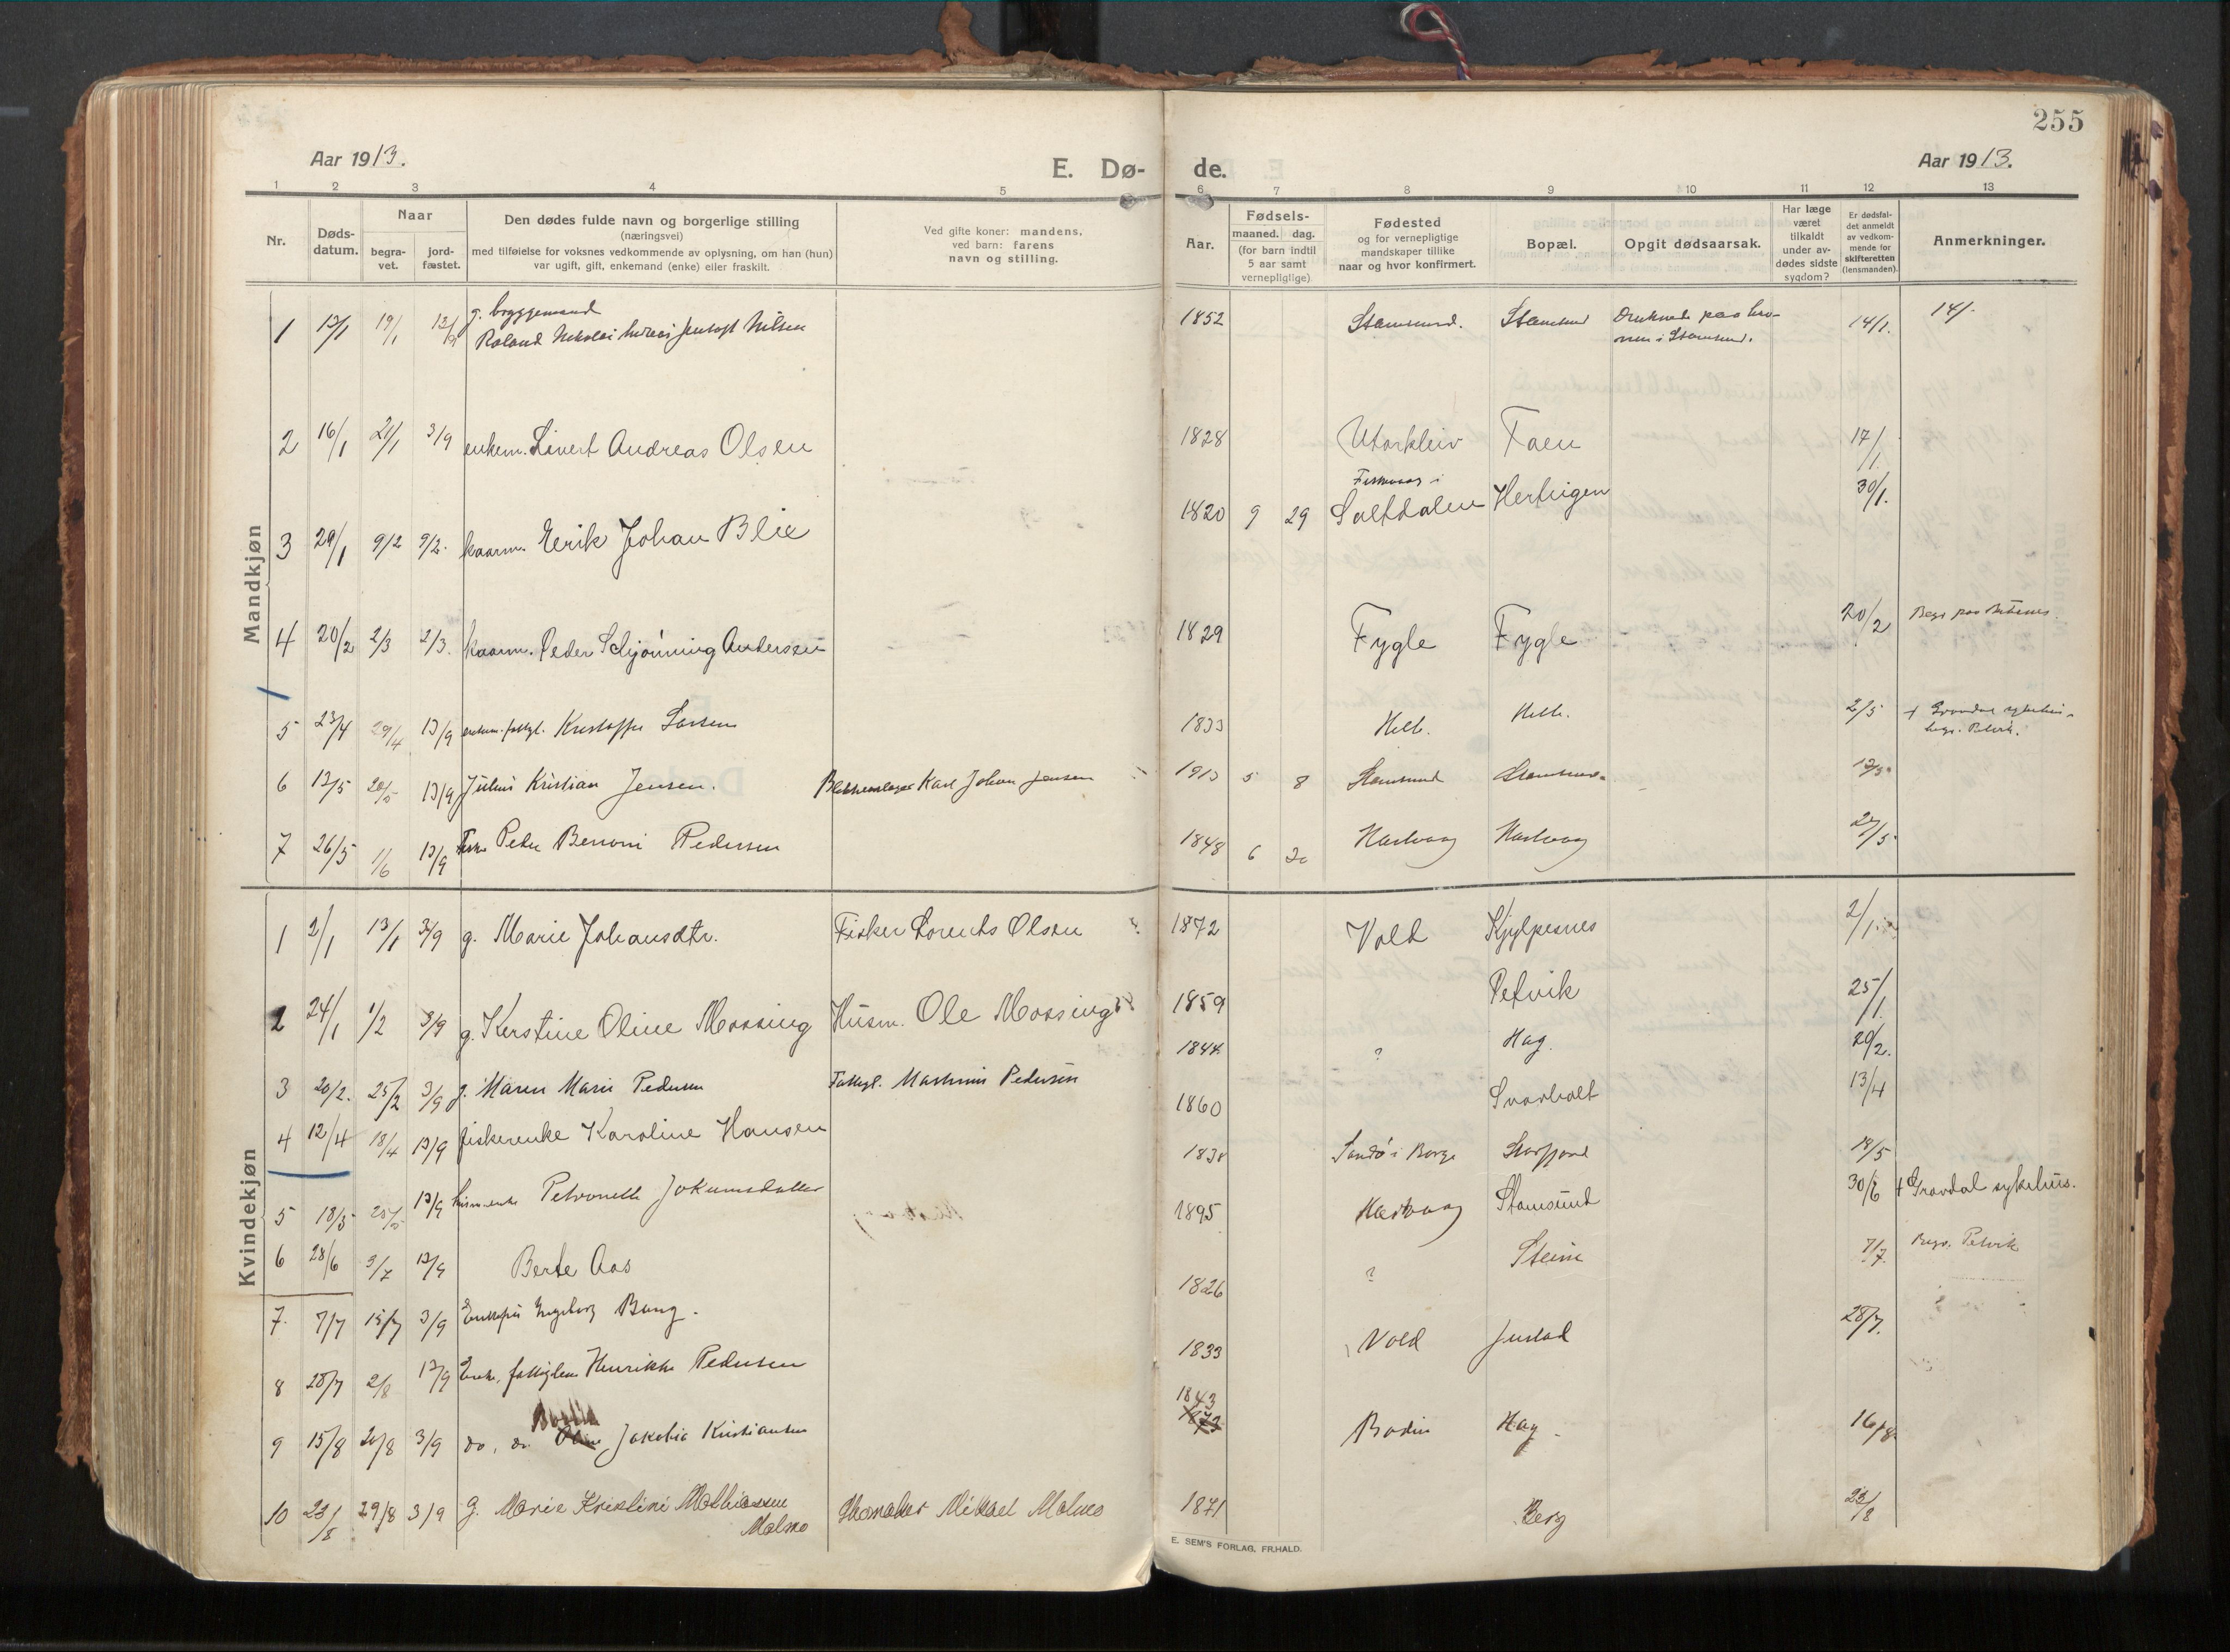 255
Aar 1913.
E. Dø- de.
Aar 1913.
1 2 3 4 5 6 7 8 9 10 11 12 13
Nr.
Døds-
datum.
Naar
begra-
vet.
jord-
fæstet.
Den dødes fulde navn og borgerlige stilling
(næringsvei)
med tilføielse for voksnes vedkommende av oplysning, om han (hun)
var ugift, gift, enkemand (enke) eller fraskilt.
Ved gifte koner: mandens,
ved barn: farens
navn og stilling.
Aar.
Fødsels-
maaned. dag.
(for barn indtil
5 aar samt
vernepligtige)
Fødested
og for vernepligtige
mandskaper tillike
naar og hvor konfirmert.
Bopæl.
Opgit dødsaarsak.
Har læge
været
tilkaldt
under av-
dødes sidste
sygdom?
Er dødsfal-
det anmeldt
av vedkom-
mende for
skifteretten
(lensmanden).
Anmerkninger.
Mandkjøn
g. bryggemand
1 13/1 19/1 Roland Nikolai Nilsen 1852 Stamsund. Stamsund Druknet paa hav-
nen i Stamsund. 14/1. 14/1
2 16/1 21/1 3/9 enkem. Sivert Andreas Olsen 1828 Utakleiv Taen 17/1
3 29/1 9/2 9/2. kaarm. Eerik Johan Blix 1820 9 29 Fiskvaag i
Saltdalen Hertingen 30/1.
4 20/2 2/3 2/3. kaarm. Peder Schjønning Andersen 1829 Fygle Fygle 20/2 Begr paa
5 23/4 29/4 13/9 enkem. fattgl. Kristoffer Larsen 1833 Helle. Helle. 2/5 + Gravdal sykehus
begr.
6 13/5 20/5 13/9 Julius Kristian Jensen. Karl Johan Jensen 1913 5 8 Stamsund Stamsund
7 26/5 1/6 13/9 Fisker Peder Benoni Pedersen 1848 6 20 Hartvaag Hartvaag 27/5
Kvindekjøn
1 2/1 13/1 3/9 g. Marie Johansdtr. Fisker Lorents Olsen 1872 Vold Kjylpesnes 2/1
2 24/1 1/2 3/9 g. Kerstine Oline Mossing Husm. Ole Mossing 1859 Petvik 25/1.
3 20/2. 25/2 3/9 g. Maren Marie Pedersen Fattgl. Martinus Pedersen 1844 ? Hag. 20/2.
4 12/4 18/4 13/9 fiskerenke Karoline Hansen 1860 Svarholt 13/4
5 18/5 25/5 13/9 husm.enke Petronelle Jokumsdatter 1838 Sandø i Borge Storfjord 18/5
6 28/6 3/7 13/9 Berte Aas 1895 Hartvaag Stamsund 30/6 + Gravdal sykehus.
7. 7/7 15/7 3/9 Enkefru Ingeborg Bang. 1826 ? Steine 7/7. Begr. Petvik
8 28/7 2/8 13/9 Enke, fattiglem Henrikke Pedersen 1833 Vold Justad 28/7.
9 15/8 20/8 3/9 do, do Jakobia Kristiansen 1843 Bodin Hag. 16/8
10 23/8 29/8 3/9 g. Marie Kristine Mathiassen
Malmo Skomaker Mikael Malmo 1871 Berg 23/8
E. SEM'S FORLAG, FR.HALD.